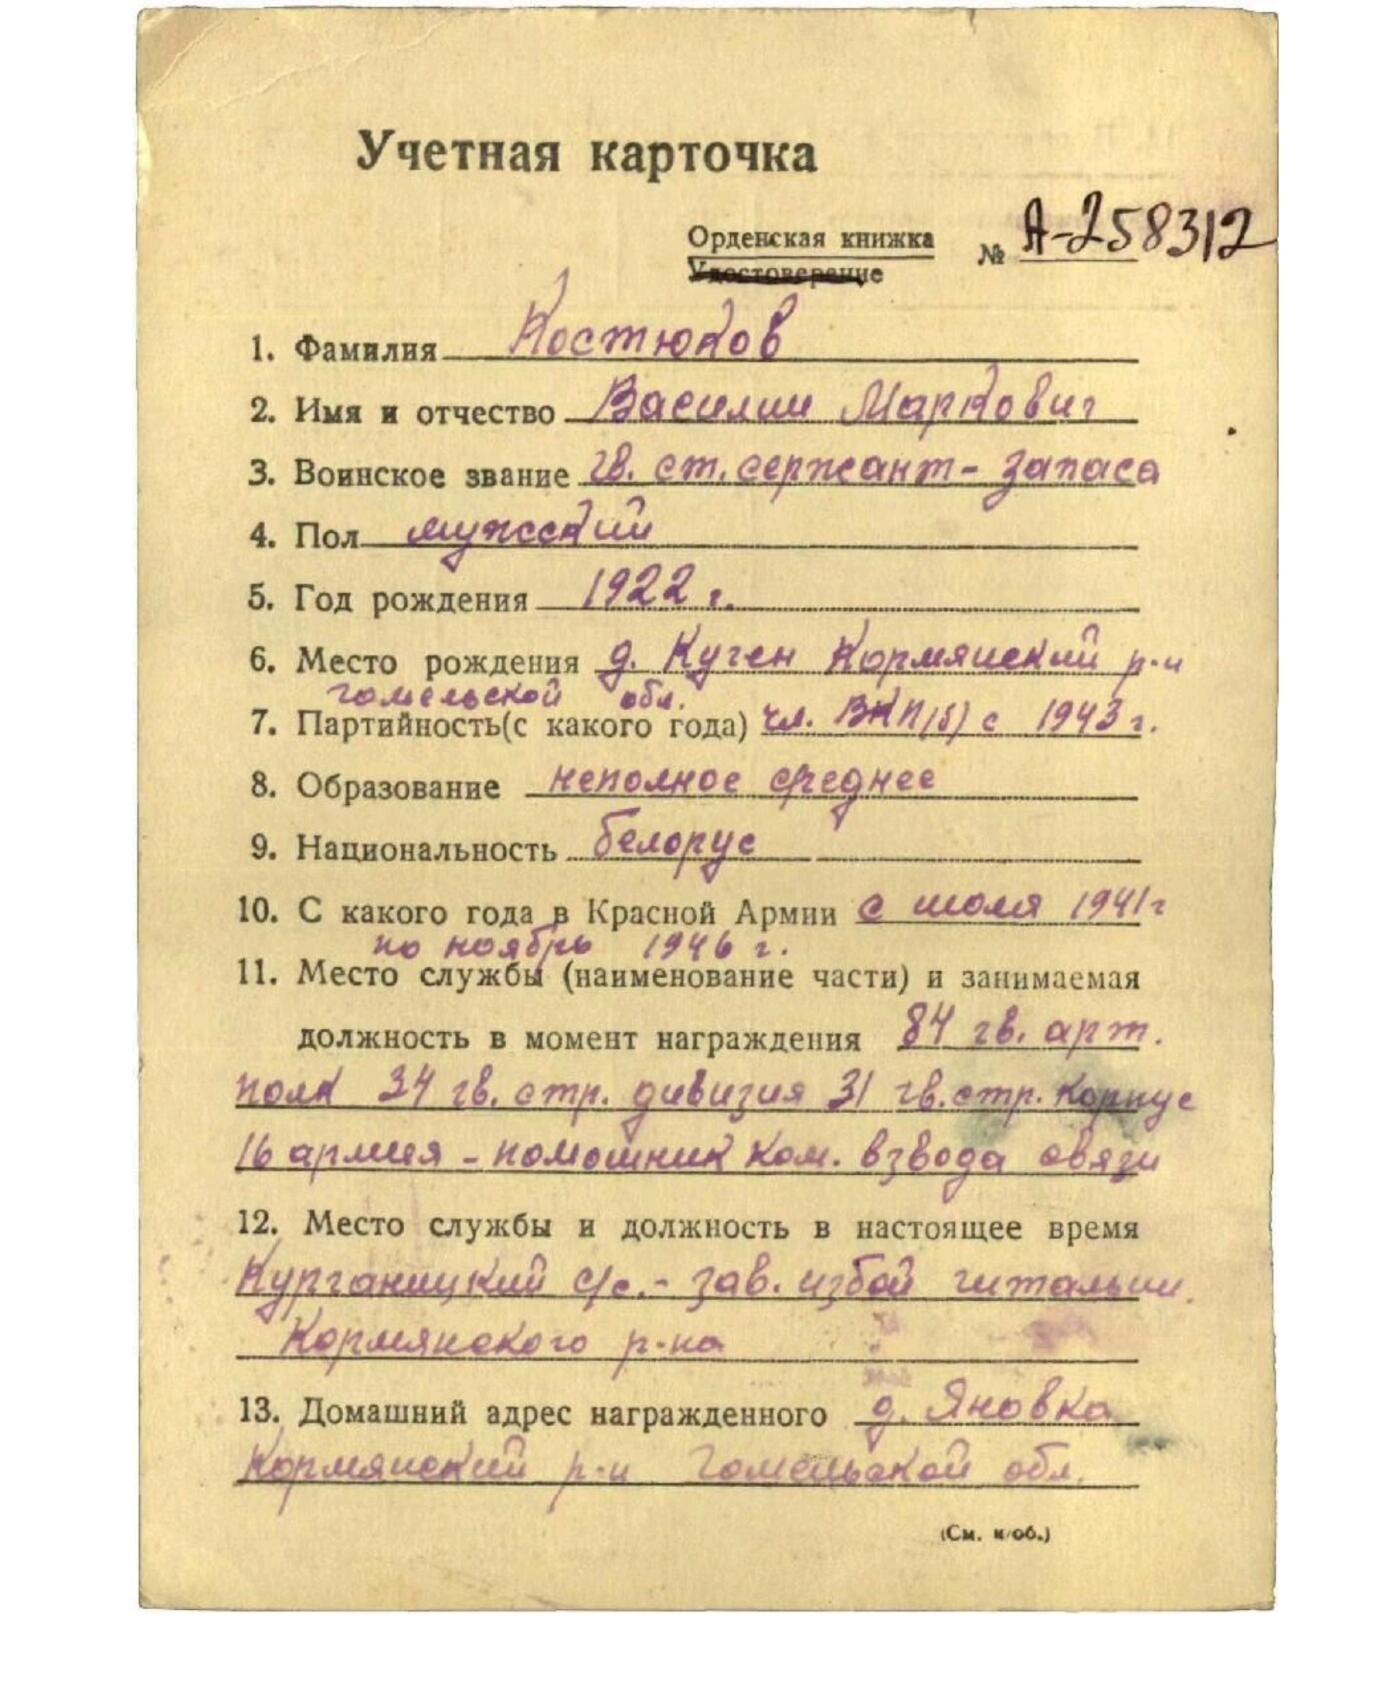 Учетная карточка
Орденская книжка № А-258312
Удостоверение
1. Фамилия Костюков
2. Имя и отчество Василий Маркович
3. Воинское звание гв. ст. сержант - запаса
4. Пол мужский
5. Год рождения 1922 г.
6. Место рождения д. Кучен Кормянский р-н
гомельской обл.
7. Партийность (с какого года) чл. ВКП(б) с 1943 г.
8. Образование неполное среднее
9. Национальность белорус
10. С какого года в Красной Армии с июля 1941 г
по ноябрь 1946 г.
11. Место службы (наименование части) и занимаемая
должность в момент награждения 84 гв. арт.
полк 34 гв. стр. дивизия 31 гв. стр. корпус
16 армия - помошник ком. взвода связи
12. Место службы и должность в настоящее время
Курганицкий с/с. - зав. избой читальни.
Кормянского р-на
13. Домашний адрес награжденного д. Яновка
Кормянский р-н Гомельской обл.
(См. н/об.)